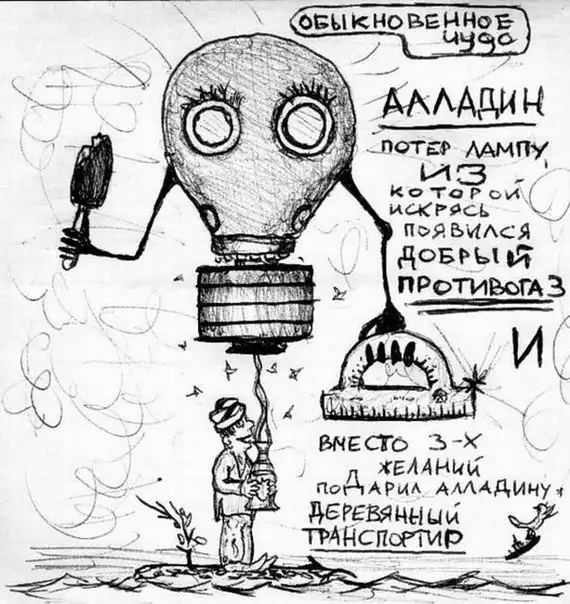 ОБЫКНОВЕННОЕ
чудо
ААЛЛАДИН
ПОТЕР ЛАМПУ,
ИЗ
КОТОРОЙ
ИСКРЯСЬ
ПОЯВИЛСЯ
ДОБРЫЙ
ПРОТИВОГАЗ
И
ВМЕСТО 3-Х
ЖЕЛАНИЙ
ПОДАРИЛ АЛЛАДИНУ
ДЕРЕВЯННЫЙ
ТРАНСПОРТИР